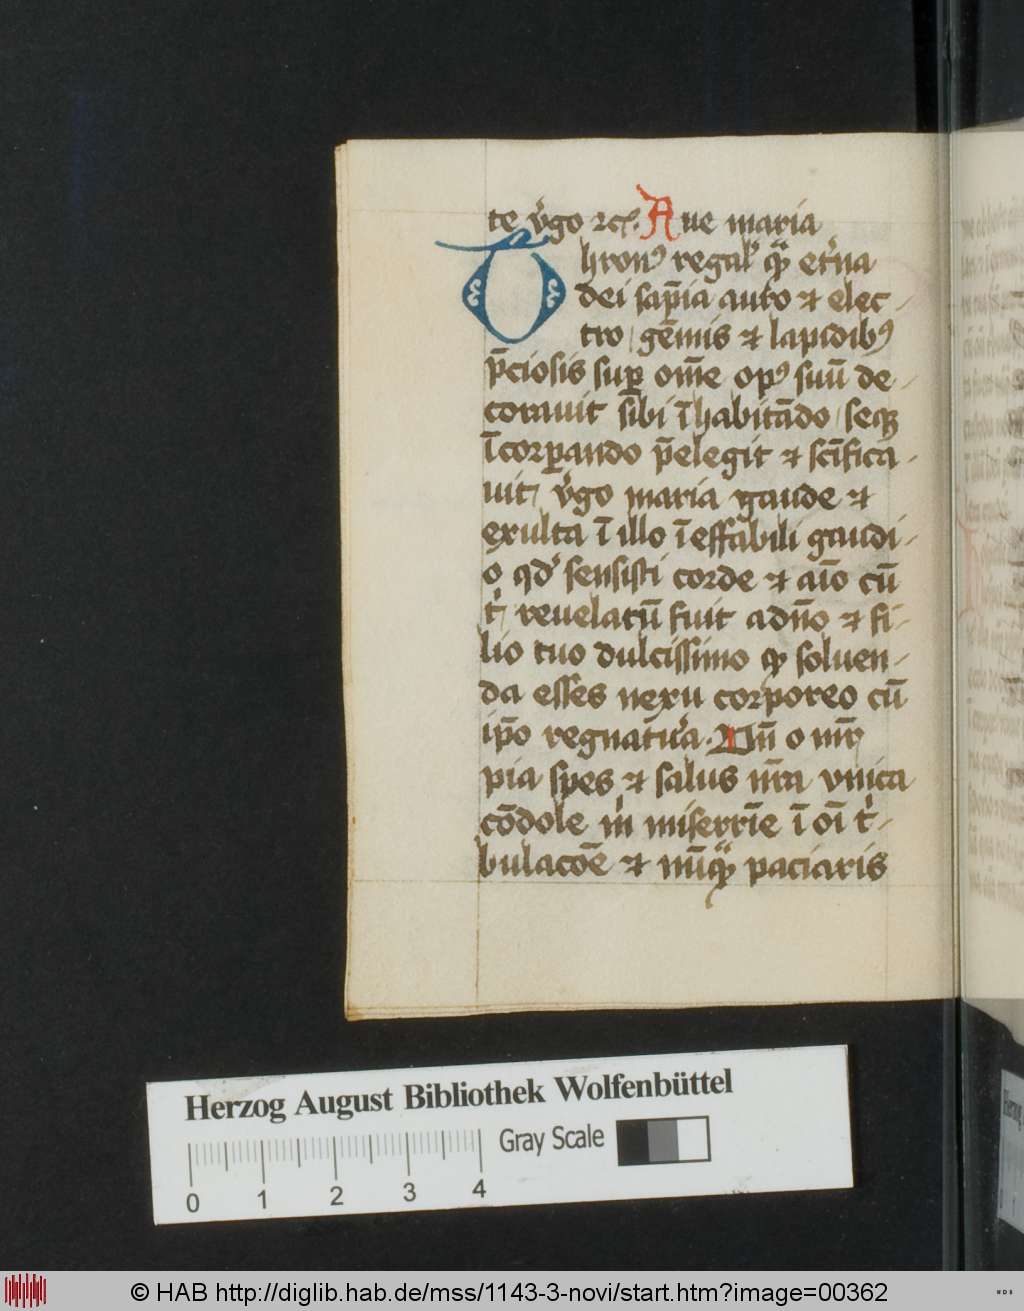 te v̓go ꝛcͥ. Aue maria
Thronꝰ regal̓ qͣ̄ et̓na
dei sap̄ia auro ⁊ elec-
tro gēmis ⁊ lapidibꝰ
p̄ciosis sup̱ om̄e opꝰ suū de-
corauit s̄ibi īhabitādo seqꝫ
īcorꝑando p̄elegit ⁊ sc̄ifica-
uit v̓go maria gaude ⁊
exulta ī illo īeffabili gaudi-
o qd̓ sensisti corde ⁊ aīo cū
t̓ reuelatū fuit adn̄o ⁊ fi-
lio tuo dulcissimo qꝫ soluen-
da esses nexu corporeo cū
ip̄o regnatura. Vn̄ o mr̄
pia spes ⁊ salus nr̄a vnica
cōdole m̓ miserr̄ie ī oī t̓-
bulacōe ⁊ nūqͣ̄ paciaris
Herzog August Bibliothek Wolfenbüttel
Gray Scale
0 1 2 3 4
© HAB http://diglib.hab.de/mss/1143-3-novi/start.htm?image=00362